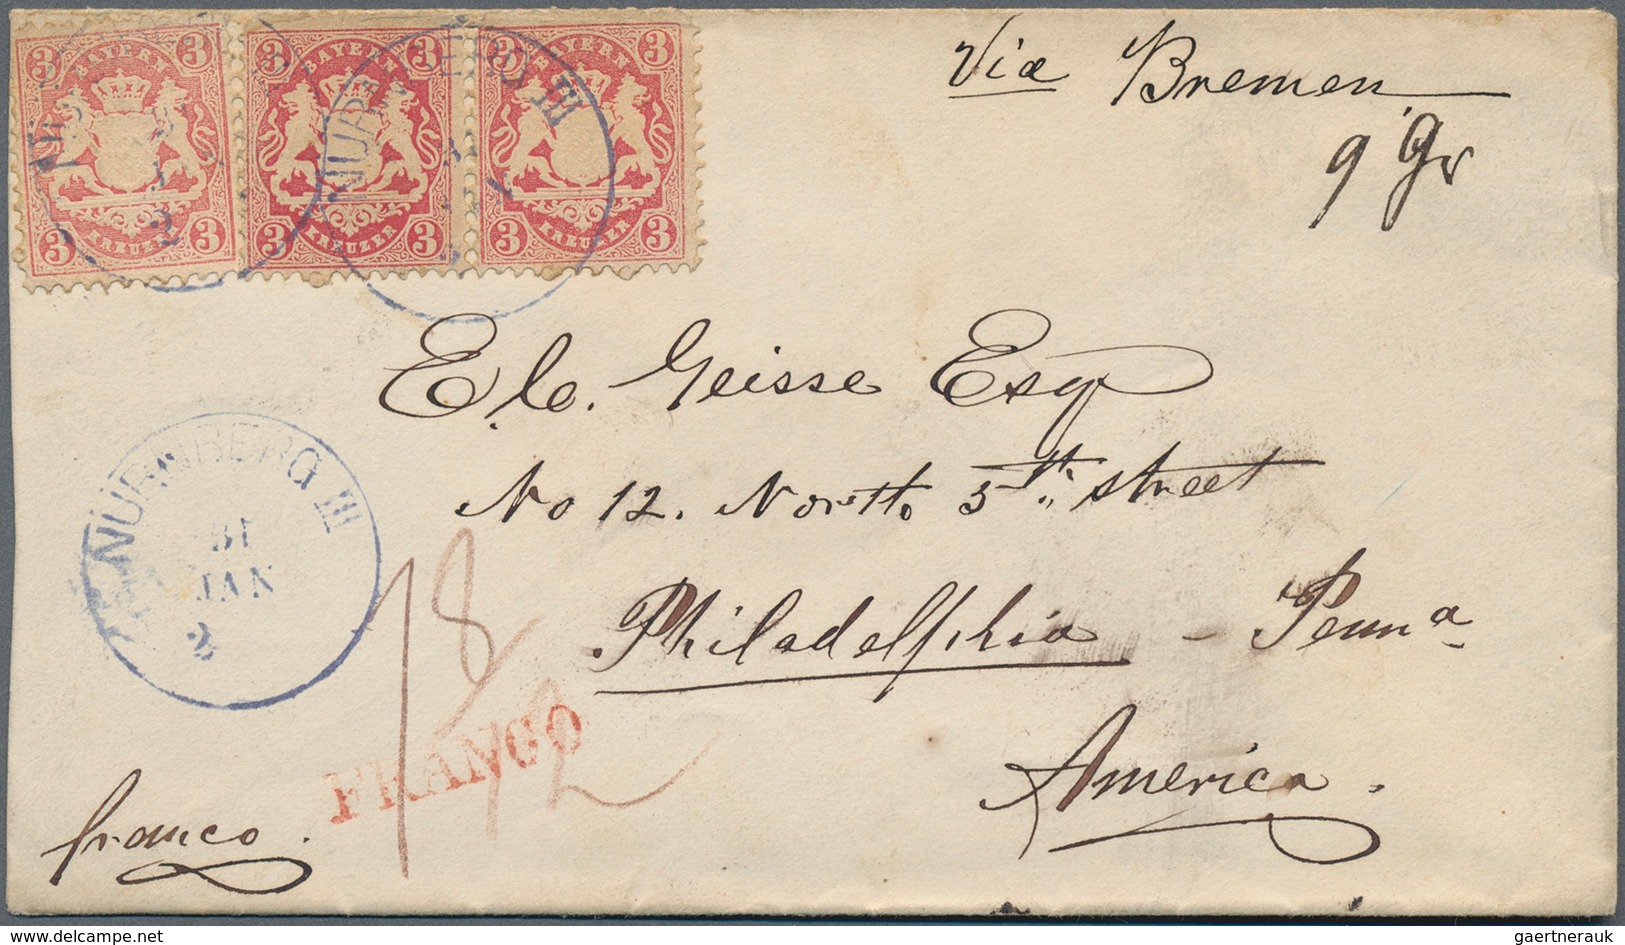 3 BAYERN 3
3 KREUZER 3
3 BAYERN 3
3 KREUZER 3
3 BAYERN 3
3 KREUZER 3
NÜRNBERG III
Via Bremen
9 Gr
E. Geisse Esq
No 12. North 5th street
Philadelphia - Penna
America.
NÜRNBERG III
31
JAN
2
FRANCO
franco.
delcampe.net
gaertnerauk